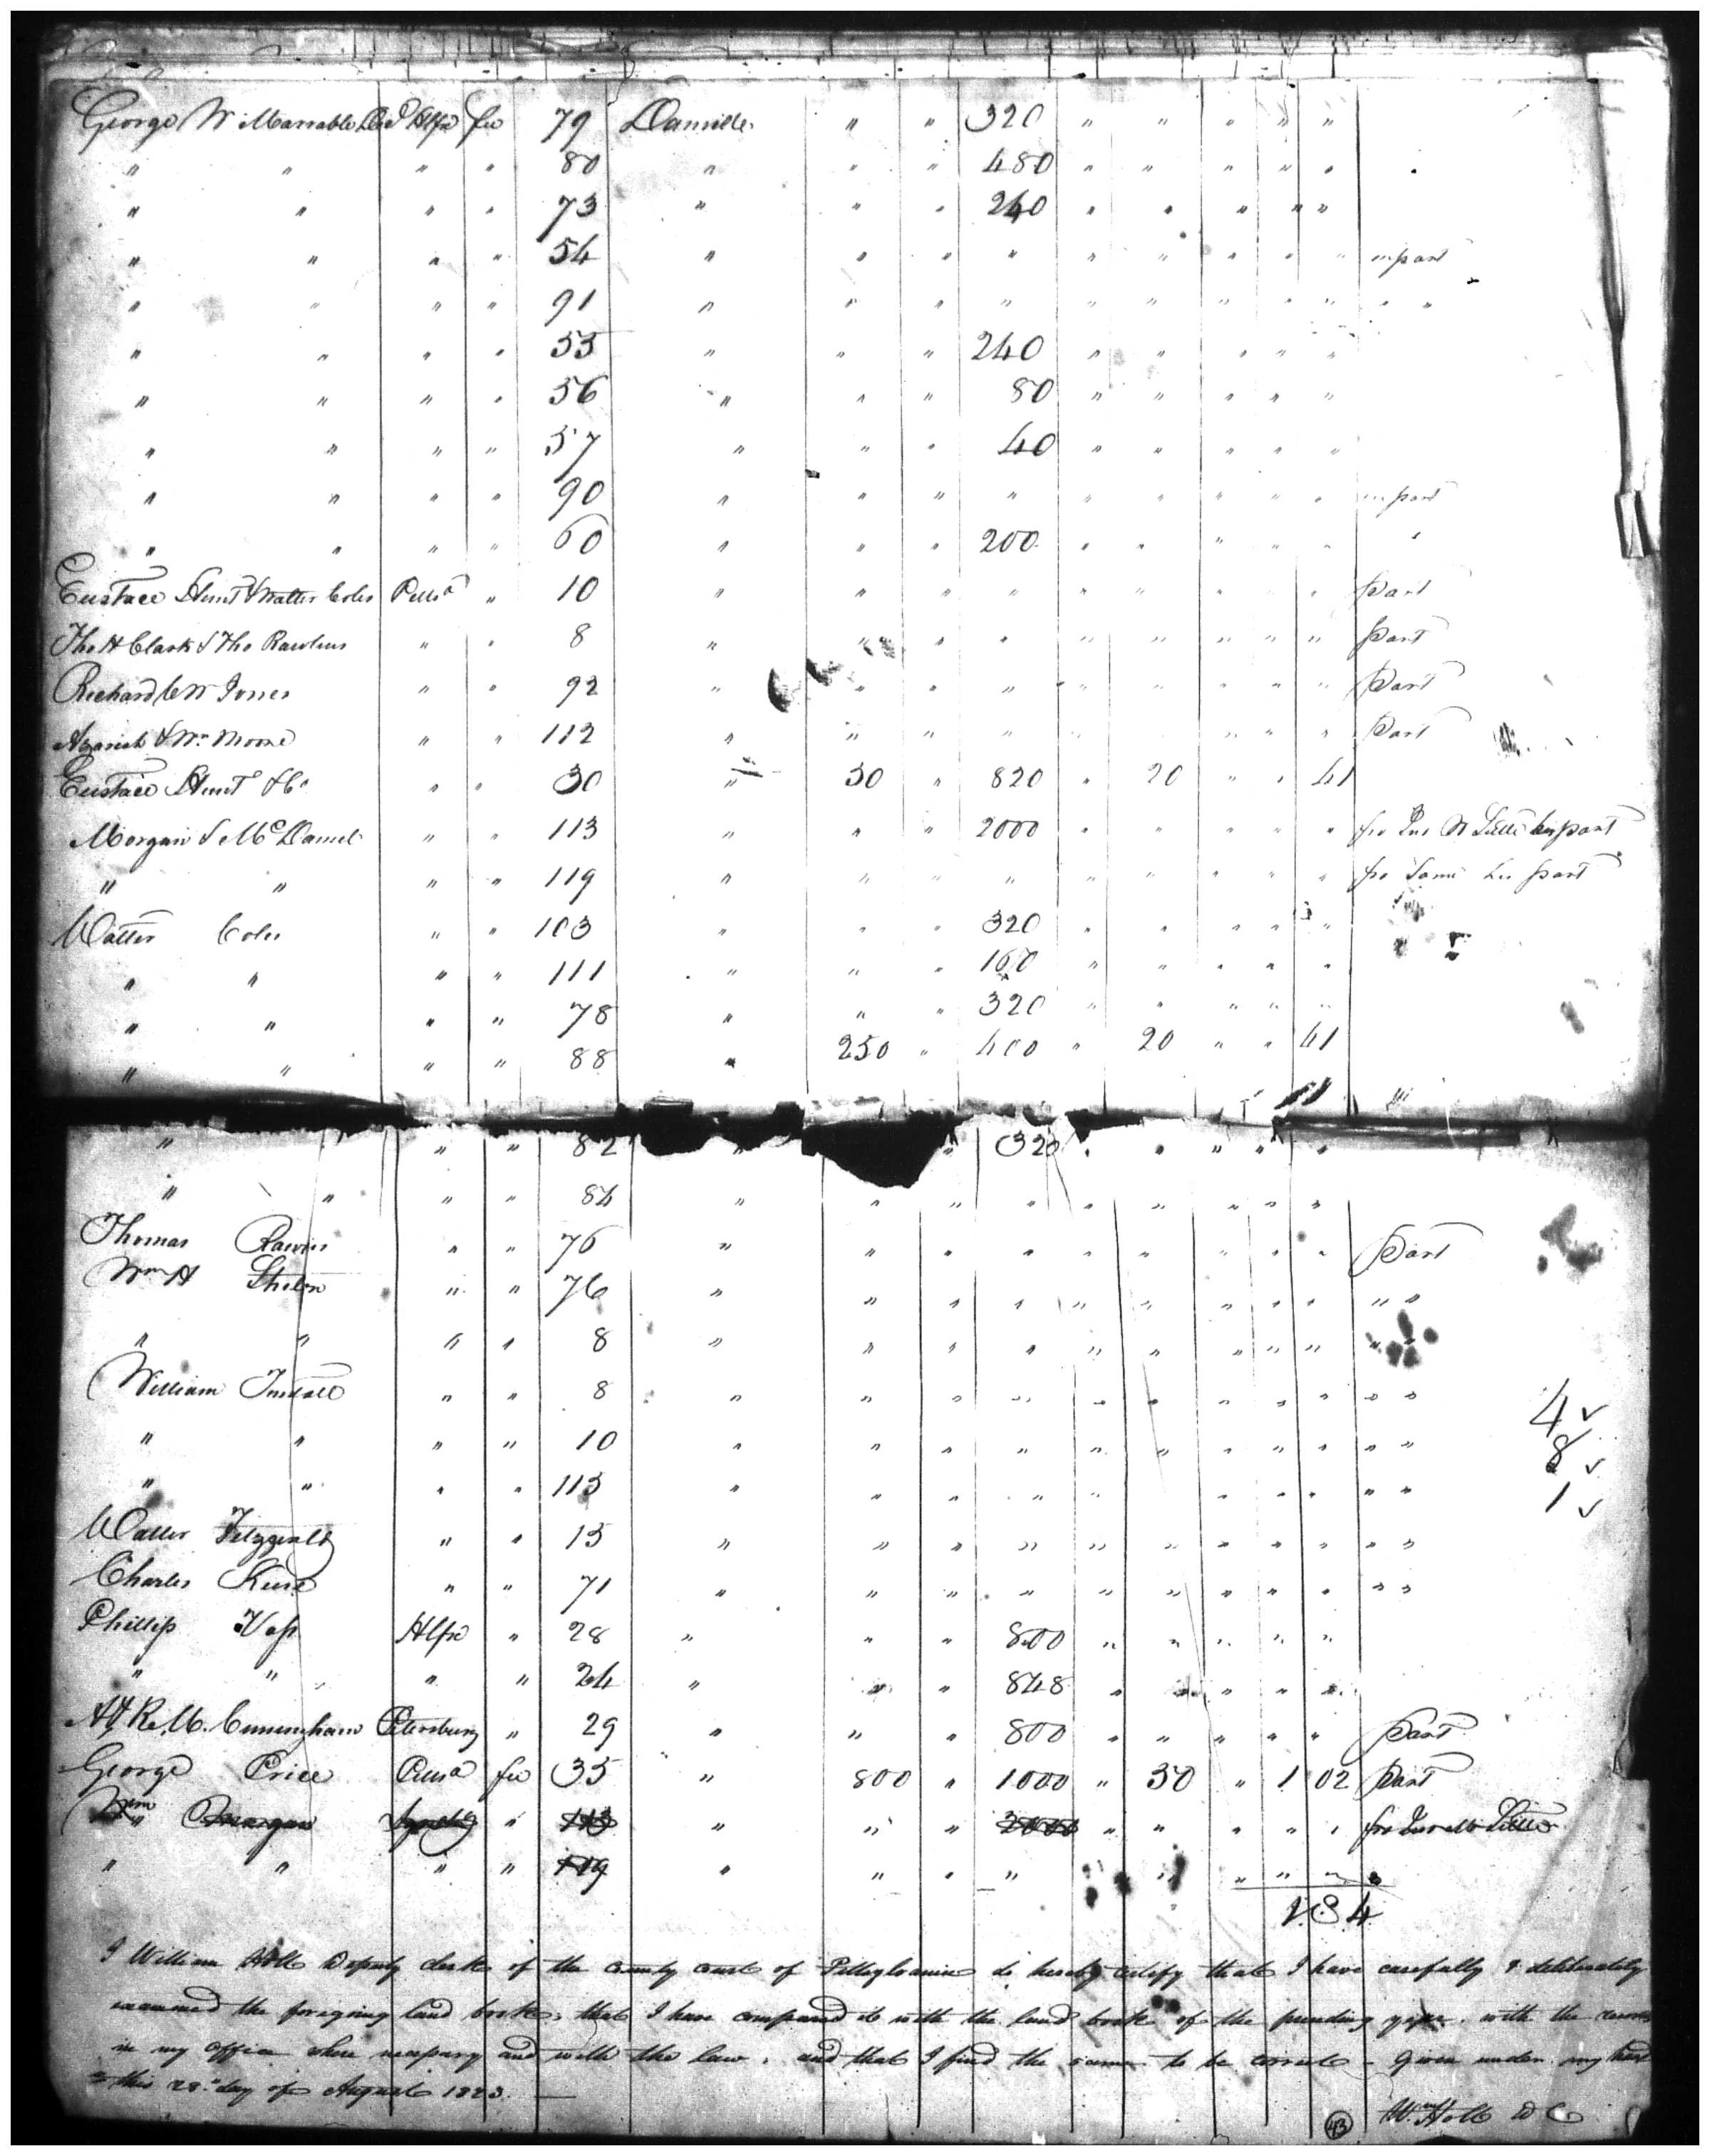 George W Marrable Hlfx fee 79 Danville " " 320 " " " " "
" " " " 80 " " " 480 " " " " "
" " " " 73 " " " 240 " " " " "
" " " " 54 " " " " " " " " " in part
" " " " 91 " " " " " " " " " " "
" " " " 55 " " " 240 " " " " "
" " " " 56 " " " 80 " " " " "
" " " " 57 " " " 40 " " " " "
" " " " 90 " " " " " " " " " in part
" " " " 60 " " " 200 " " " " " "
Eustace Hunt & Walter Coles Pittsa " 10 " " " " " " " " " Part
Tho H Clark & Tho Rawlins " " 8 " " " " " " " " " Part
Richard C W Jones " " 92 " " " " " " " " " Part
Azariah & Wm Moore " " 112 " " " " " " " " Part
Eustace Hunt & Co " " 30 " 50 " 820 " 20 " " 41
Morgan & McDaniel " " 113 " " " 2000 " " " " " W Little his part
" " " " 119 " " " " " " " " " fro Same his part
Walter Coles " " 103 " " " 320 " " " " "
" " " " 111 " " " 160 " " " " "
" " " " 78 " " " 320 " " " " "
" " " " 88 " 250 " 400 " 20 " " 41
" " " 82 " " 320 " " " " "
" " " " 84 " " " " " " " " "
Thomas Rawlins " " 76 " " " " " " " " " Part
Wm H Shelton " " 76 " " " " " " " " " " "
" " " " 8 " " " " " " " " " " "
William Tunstall " " 8 " " " " " " " " " " "
4 ✓
" " " " 10 " " " " " " " " " " "
8 ✓
" " " " 113 " " " " " " " " " "
1 ✓
Walter Fitzgerald " " 15 " " " " " " " " " " "
Charles " " 71 " " " " " " " " " " "
Phillip Vass Hlfx " 28 " " " 800 " " " " "
" " " " 24 " " " 848 " " " " "
A & R. M. Cuningham Petersburg " 29 " " " 800 " " " " " Part
George Price Pittsa fee 35 " 800 " 1000 " 50 " 1 02 Part
Wm Morgan " 113 " " " 2000 " " " " " Little
" " " " 119 " " " " " " " "
1.84
I William Holt Deputy clerk of the county court of Pittsylvania do hereby certify that I have carefully & deliberately
examined the foregoing land book, that I have compared it with the land book of the preceeding year. with the records
in my office where necessary and with the law. and that I find the same to be correct - Given under my hand
this 28th day of August 1823.
Wm Holt D C
43